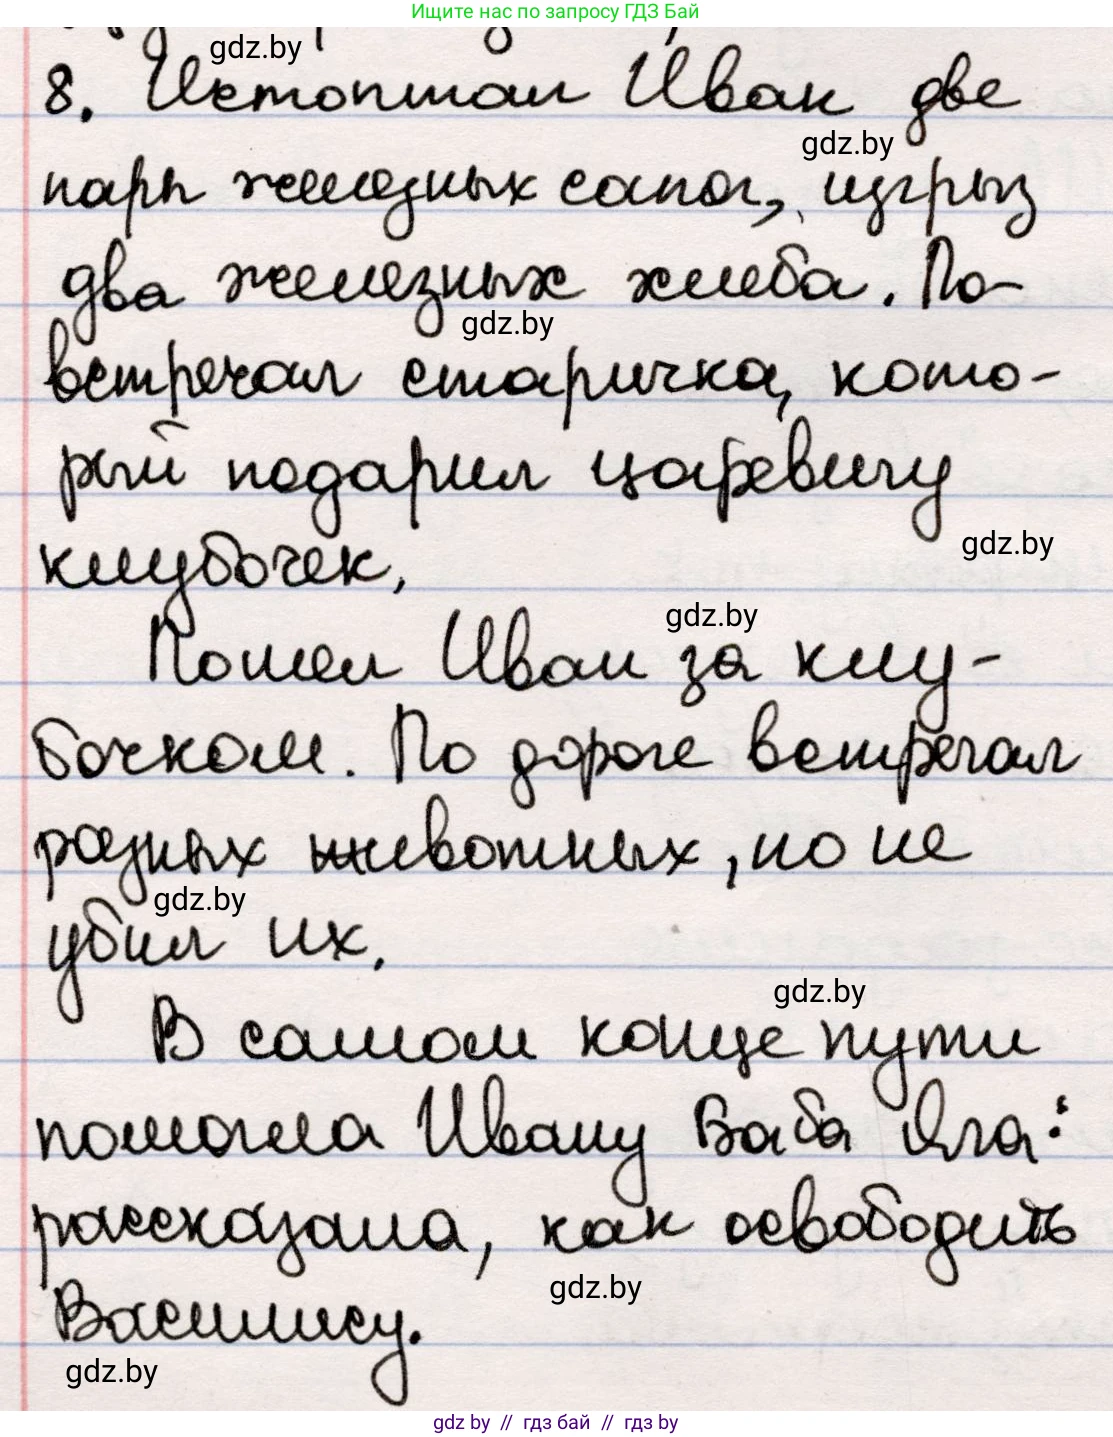 Ищите нас по запросу ГДЗ Бай
gdz.by
8. Истоптал Иван две
gdz.by
пары железных сапог, изгрыз
два железных хлеба. По-
gdz.by
встречал старичка, кото-
рый подарил царевичу
gdz.by
клубочек.
gdz.by
Пошел Иван за клу-
бочком. По дороге встречал
разных животных, но не
gdz.by
убил их.
gdz.by
В самом конце пути
помогла Ивану Баба Яга:
рассказала, как освободить
gdz.by
Василису.
gdz.by
gdz by // гдз бай // гдз by